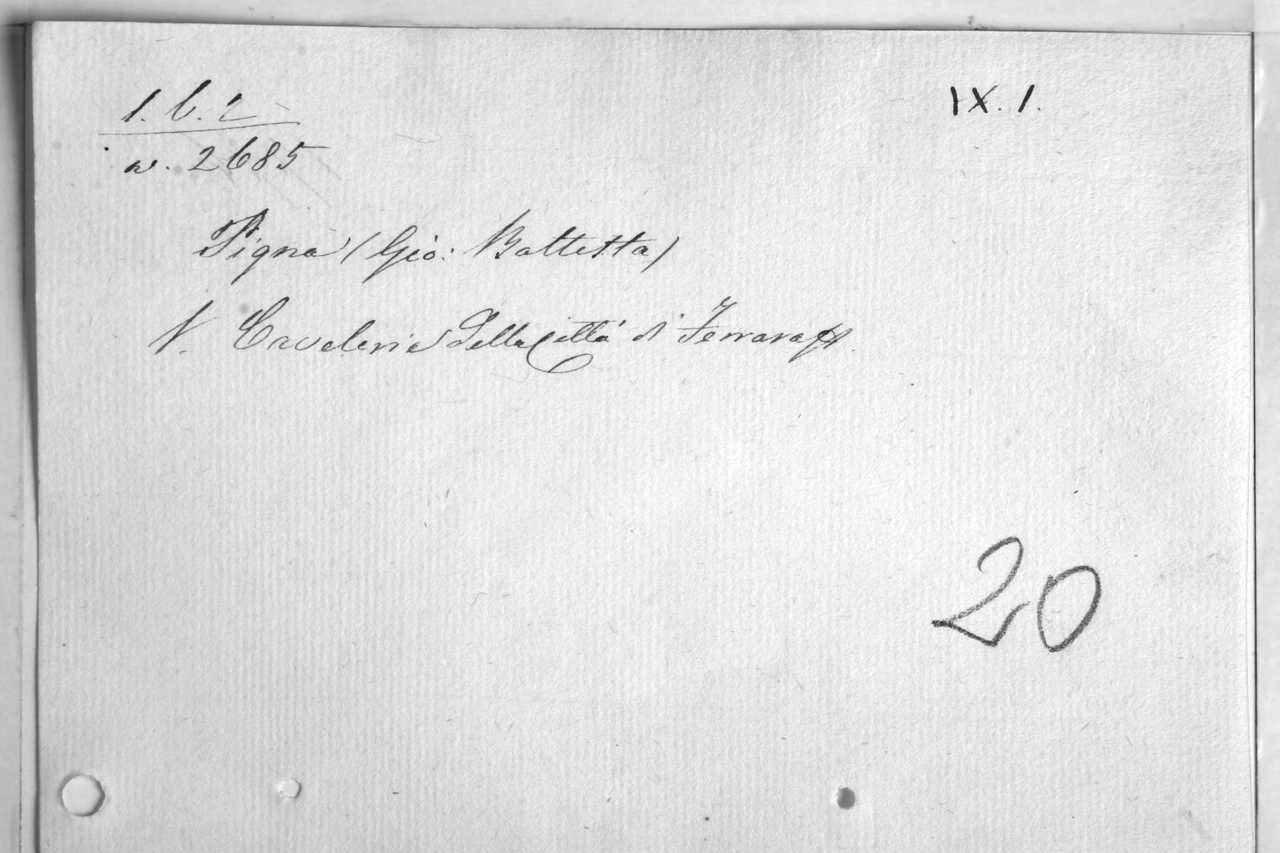 1. b. 2
IX. 1.
n. 2685
Pigna (Gio: Battista)
V. Cavalerie della Città di Ferrara
20